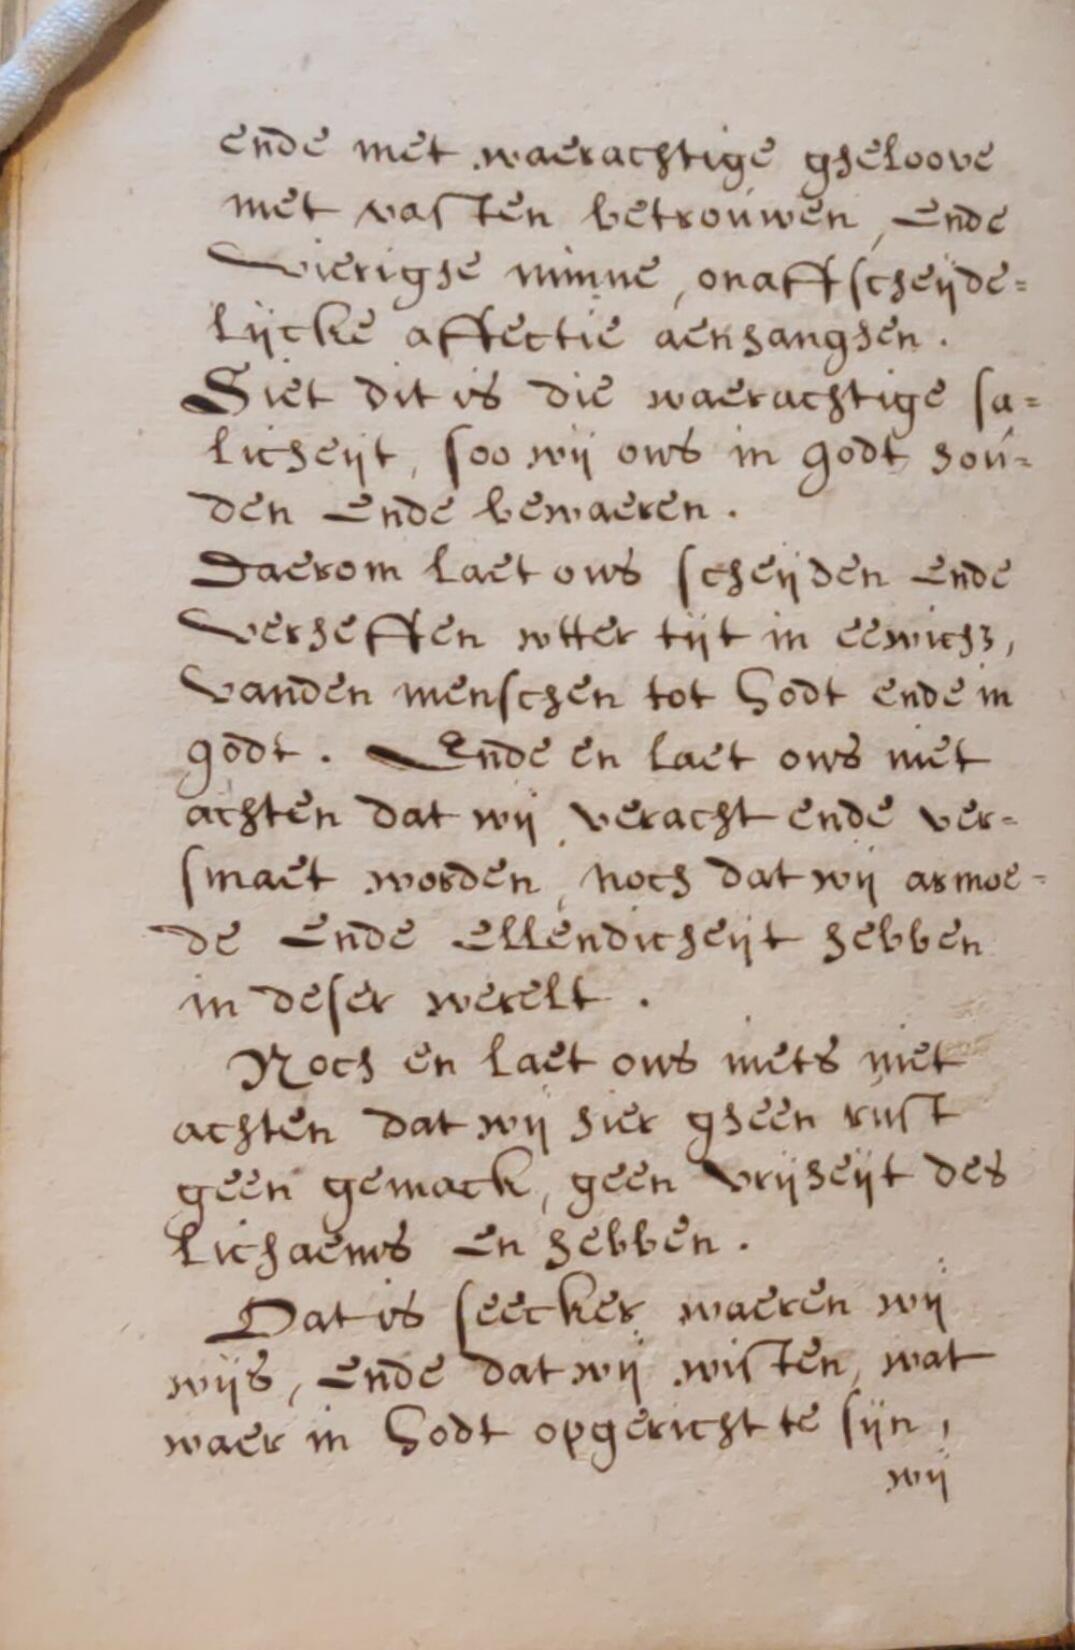 ende met waerachtige gheloove
met vasten betrouwen, ende
vierighe minne, onaffscheijde=
lijcke affectie aenhanghen.
Siet dit is die waerachtige sa=
licheijt, soo wij ons in godt hou=
den ende bewaeren.
Daerom laet ons scheijden ende
verheffen wtter tijt in eewich3,
vanden menschen tot Godt ende in
godt. Ende en laet ons niet
achten dat wij veracht ende ver=
smaet worden, noch dat wij armoe=
de ende ellendicheijt hebben
in deser werelt.
Noch en laet ons niets niet
achten dat wij hier gheen rust
geen gemack, geen vrijheijt des
lichaems en hebben.
Dat is seecker waeren wij
wijs, ende dat wij wisten, wat
waer in Godt opgericht te sijn,
wij